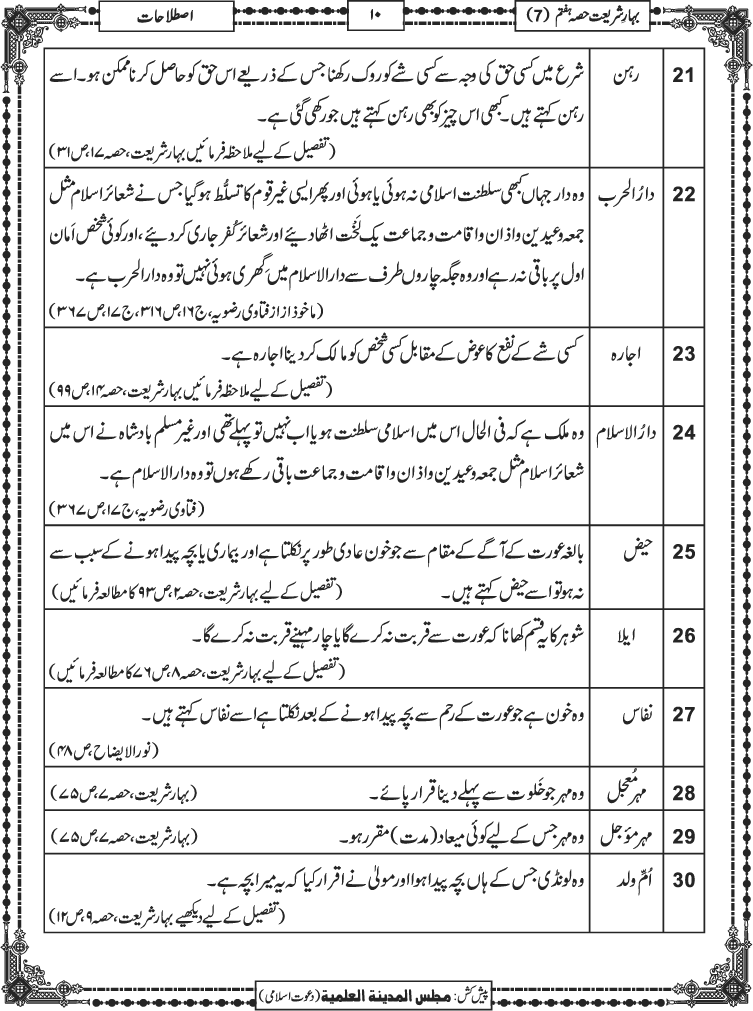 بہارِشریعت حصہ ہفتم (7)
۱۰
اصطلاحات
21 رہن شرع میں کسی حق کی وجہ سے کسی شے کو روک رکھنا جس کے ذریعے اس حق کو حاصل کرنا ممکن ہو۔اسے
رہن کہتے ہیں۔کبھی اس چیز کو بھی رہن کہتے ہیں جو رکھی گئی ہے۔
(تفصیل کے لیے ملاحظہ فرمائیں بہارِشریعت،حصہ۱۷،ص۳۱)
22 دارُالحرب وہ دار جہاں کبھی سلطنت اسلامی نہ ہوئی یا ہوئی اور پھر ایسی غیر قوم کا تسلُّط ہوگیا جس نے شعائر اسلام مثل
جمعہ وعیدین واذان واقامت وجماعت یک لَخْت اٹھادیئے اور شعائر کُفر جاری کردیئے،اور کوئی شخص اَمان
اول پر باقی نہ رہے اور وہ جگہ چاروں طرف سے دارالاسلام میں گِھری ہوئی نہیں تو وہ دارالحرب ہے۔
(ماخوذ از از فتاوی رضویہ، ج۱۶، ص۳۱۶، ج۱۷، ص۳۶۷)
23 اجارہ کسی شے کے نفع کا عوض کے مقابل کسی شخص کو مالک کردینا اجارہ ہے۔
(تفصیل کے لیے ملاحظہ فرمائیں بہارِشریعت،حصہ۱۴،ص۹۹)
24 دارُالاسلام وہ ملک ہے کہ فی الحال اس میں اسلامی سلطنت ہو یا اب نہیں تو پہلے تھی اور غیر مسلم بادشاہ نے اس میں
شعائر اسلام مثل جمعہ وعیدین واذان واقامت وجماعت باقی رکھے ہوں تو وہ دارالاسلام ہے۔
(فتاوی رضویہ، ج۱۷، ص۳۶۷)
25 حیض بالغہ عورت کے آگے کے مقام سے جو خون عادی طور پر نکلتا ہے اور بیماری یا بچہ پیدا ہونے کے سبب سے
نہ ہو تو اسے حیض کہتے ہیں۔ (تفصیل کے لیے بہارِشریعت،حصہ۲،ص۹۳ کا مطالعہ فرمائیں)
26 ایلا شوہر کا یہ قسم کھانا کہ عورت سے قربت نہ کرے گا یا چار مہینے قربت نہ کرے گا۔
(تفصیل کے لیے بہارِشریعت،حصہ۸،ص۷۶ کا مطالعہ فرمائیں)
27 نفاس وہ خون ہے جو عورت کے رحم سے بچہ پیدا ہونے کے بعد نکلتا ہے اسے نفاس کہتے ہیں۔
(نورالایضاح،ص۴۸)
28 مہر مُعجل وہ مہر جو خَلوت سے پہلے دینا قرار پائے۔ (بہارِشریعت،حصہ۷،ص۷۵)
29 مہر مؤجل وہ مہر جس کے لیے کوئی میعاد(مدت)مقرر ہو۔ (بہارِشریعت،حصہ۷،ص۷۵)
30 اُمِّ ولد وہ لونڈی جس کے ہاں بچہ پیدا ہوا اور مولیٰ نے اقرار کیا کہ یہ میرا بچہ ہے۔
(تفصیل کے لیے دیکھیے بہارِشریعت،حصہ۹،ص۱۲)
پیش کش: مجلس المدینة العلمیة (دعوت اسلامی)